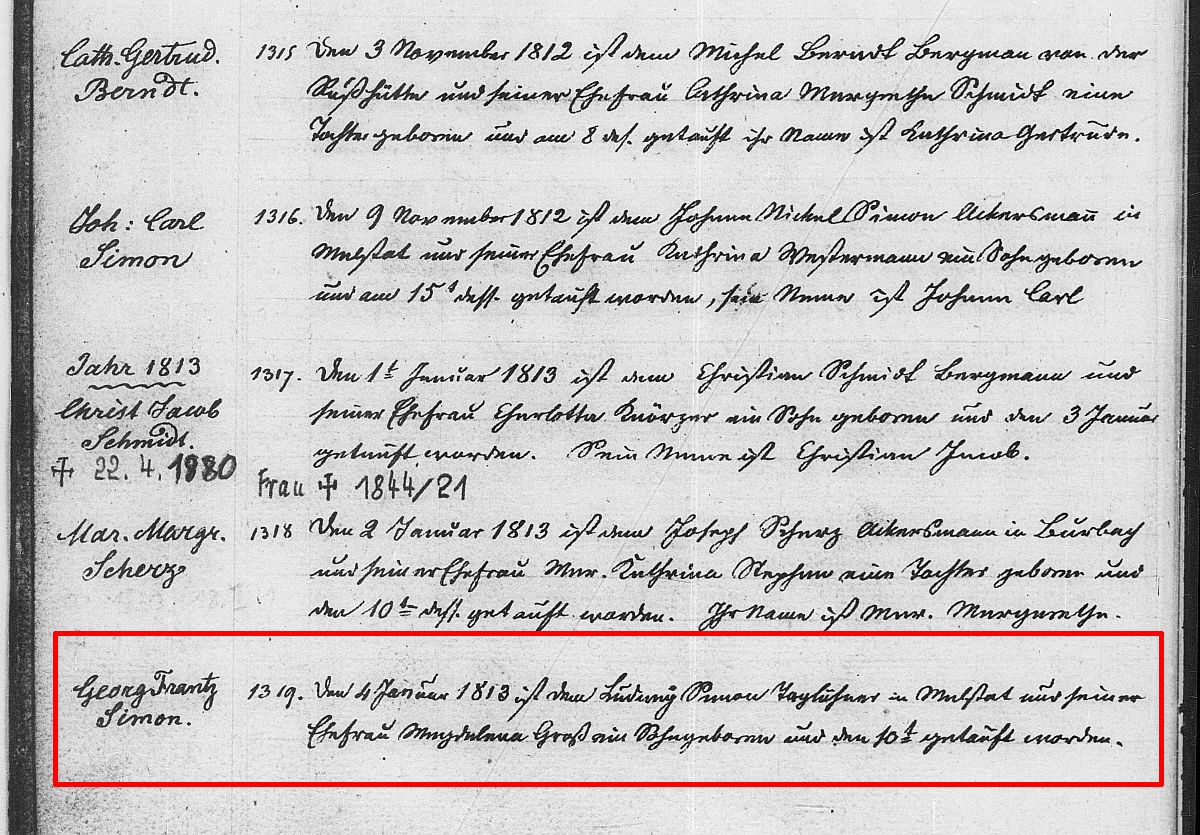 Cath. Gertrud.
Berndt.
1315 Den 3 November 1812 ist dem Michel Berndt Bergman von der
Rußhütte und seiner Ehefrau Cathrina Margrethe Schmidt eine
Tochter geboren und am 8 des. getauft ihr Name ist Kathrina Gertrude.
Joh: Carl
Simon
1316. Den 9 November 1812 ist dem Johann Nickel Simon Ackersmann in
Malstat und seiner Ehefrau Kathrina Westermann ein Sohn geboren
und am 15t dess. getauft worden, sein Name ist Johann Carl
Jahr 1813
Christ Jacob
Schmidt
✝ 22. 4. 1880
1317. Den 1t Januar 1813 ist dem Christian Schmidt Bergmann und
seiner Ehefrau Charlotta Knörzer ein Sohn geboren und den 3 Januar
getauft worden. Sein Name ist Christian Jacob.
Frau ✝ 1844/21
Mar. Margr.
Scherz
1318 Den 2 Januar 1813 ist dem Joseph Scherz Ackersmann in Burbach
und seiner Ehefrau Mar. Kathrina Stephan eine Tochter geboren und
den 10t dess. getauft worden. Ihr Name ist Mar. Margarethe.
Georg Frantz
Simon.
1319. Den 4 Januar 1813 ist dem Ludwig Simon Taglöhner in Malstat und seiner
Ehefrau Magdalena Groß ein Sohn geboren und den 10t getauft worden.